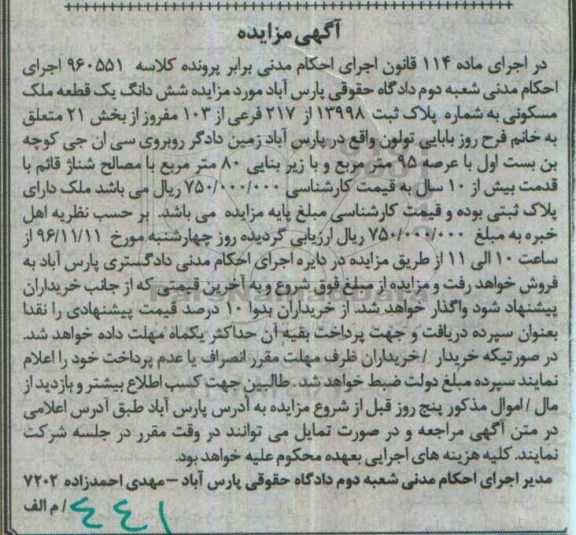 آگهی مزایده
در اجرای ماده ۱۱۴ قانون اجرای احکام مدنی برابر پرونده کلاسه ۹۶۰۵۵۱ اجرای
احکام مدنی شعبه دوم دادگاه حقوقی پارس آباد مورد مزایده شش دانگ یک قطعه ملک
مسکونی به شماره پلاک ثبت ۱۳۹۹۸ از ۲۱۷ فرعی از ۱۰۳ مفروز از بخش ۲۱ متعلق
به خانم فرح روز بابایی تولون واقع در پارس آباد زمین دادگر روبروی سی ان جی کوچه
بن بست اول با عرصه ۹۵ متر مربع و با زیر بنایی ۸۰ متر مربع با مصالح شناژ قائم با
قدمت بیش از ۱۰ سال به قیمت کارشناسی ۷۵۰/۰۰۰/۰۰۰ ریال می باشد ملک دارای
پلاک ثبتی بوده و قیمت کارشناسی مبلغ پایه مزایده می باشد. بر حسب نظریه اهل
خبره به مبلغ ۷۵۰/۰۰۰/۰۰۰ ریال ارزیابی گردیده روز چهارشنبه مورخ ۹۶/۱۱/۱۱ از
ساعت ۱۰ الی ۱۱ از طریق مزایده در دایره اجرای احکام مدنی دادگستری پارس آباد به
فروش خواهد رفت و مزایده از مبلغ فوق شروع و به آخرین قیمتی که از جانب خریداران
پیشنهاد شود واگذار خواهد شد. از خریداران بدوا ۱۰ درصد قیمت پیشنهادی را نقدا
بعنوان سپرده دریافت و جهت پرداخت بقیه آن حداکثر یکماه مهلت داده خواهد شد.
در صورتیکه خریدار /خریداران ظرف مهلت مقرر انصراف یا عدم پرداخت خود را اعلام
نمایند سپرده مبلغ دولت ضبط خواهد شد. طالبین جهت کسب اطلاع بیشتر و بازدید از
مال / اموال مذکور پنج روز قبل از شروع مزایده به آدرس پارس آباد طبق آدرس اعلامی
در متن آگهی مراجعه و در صورت تمایل می توانند در وقت مقرر در جلسه شرکت
نمایند. کلیه هزینه های اجرایی بعهده محکوم علیه خواهد بود.
مدیر اجرای احکام مدنی شعبه دوم دادگاه حقوقی پارس آباد – مهدی احمدزاده ۷۲۰۲
/ م الف ۴۴۱